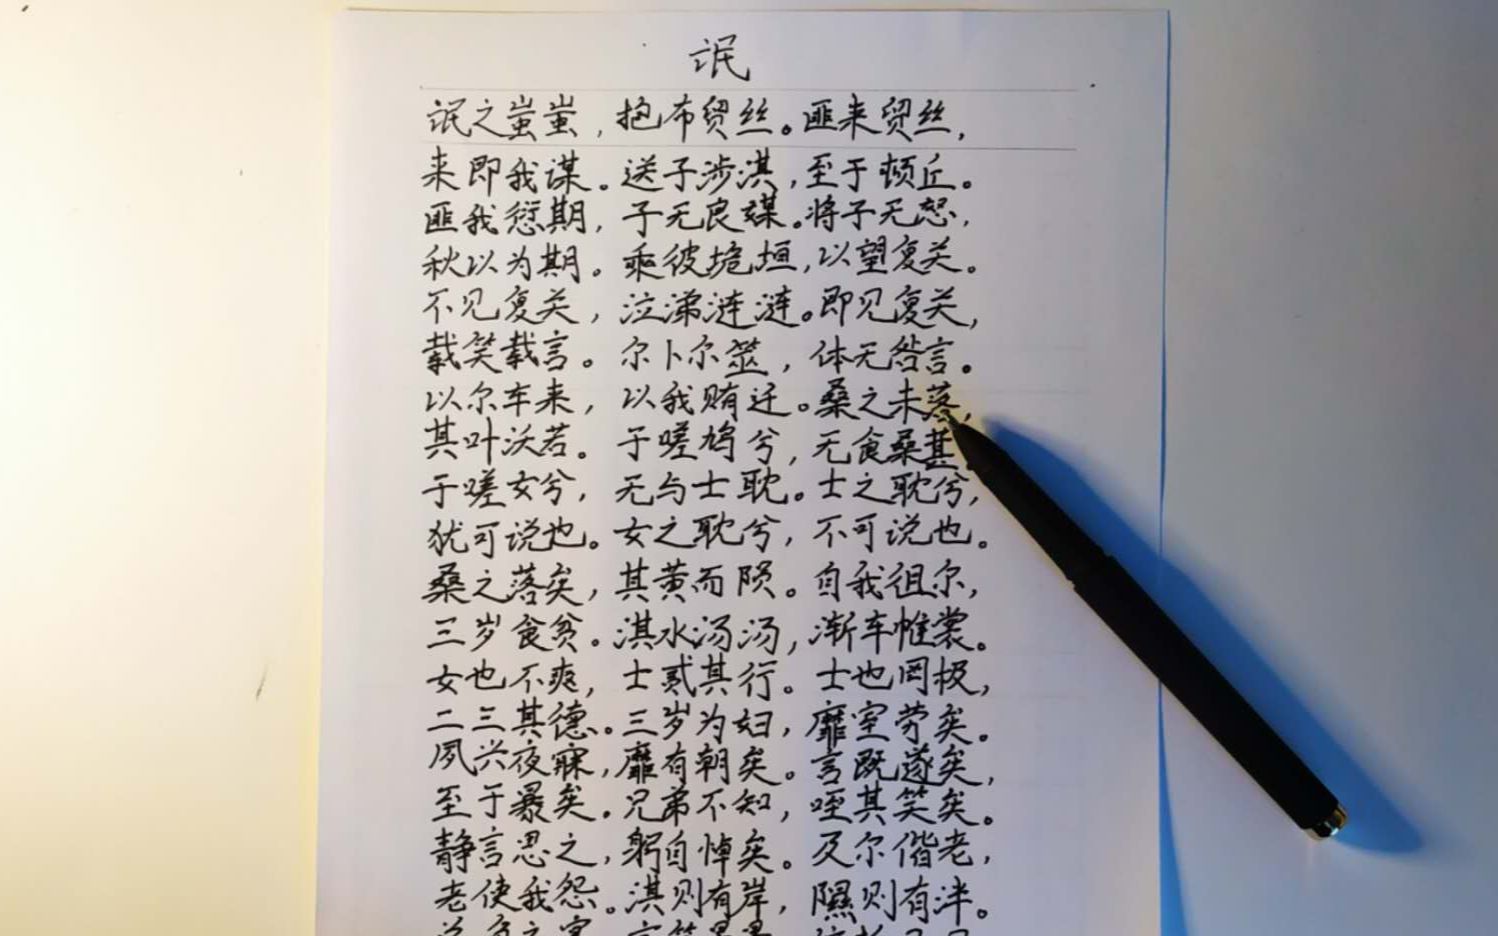 氓
氓之蚩蚩，抱布贸丝。匪来贸丝，
来即我谋。送子涉淇，至于顿丘。
匪我愆期，子无良媒。将子无怒，
秋以为期。乘彼垝垣，以望复关。
不见复关，泣涕涟涟。即见复关，
载笑载言。尔卜尔筮，体无咎言。
以尔车来，以我贿迁。桑之未落，
其叶沃若。于嗟鸠兮，无食桑葚。
于嗟女兮，无与士耽。士之耽兮，
犹可说也。女之耽兮，不可说也。
桑之落矣，其黄而陨。自我徂尔，
三岁食贫。淇水汤汤，渐车帷裳。
女也不爽，士贰其行。士也罔极，
二三其德。三岁为妇，靡室劳矣。
夙兴夜寐，靡有朝矣。言既遂矣，
至于暴矣。兄弟不知，咥其笑矣。
静言思之，躬自悼矣。及尔偕老，
老使我怨。淇则有岸，隰则有泮。